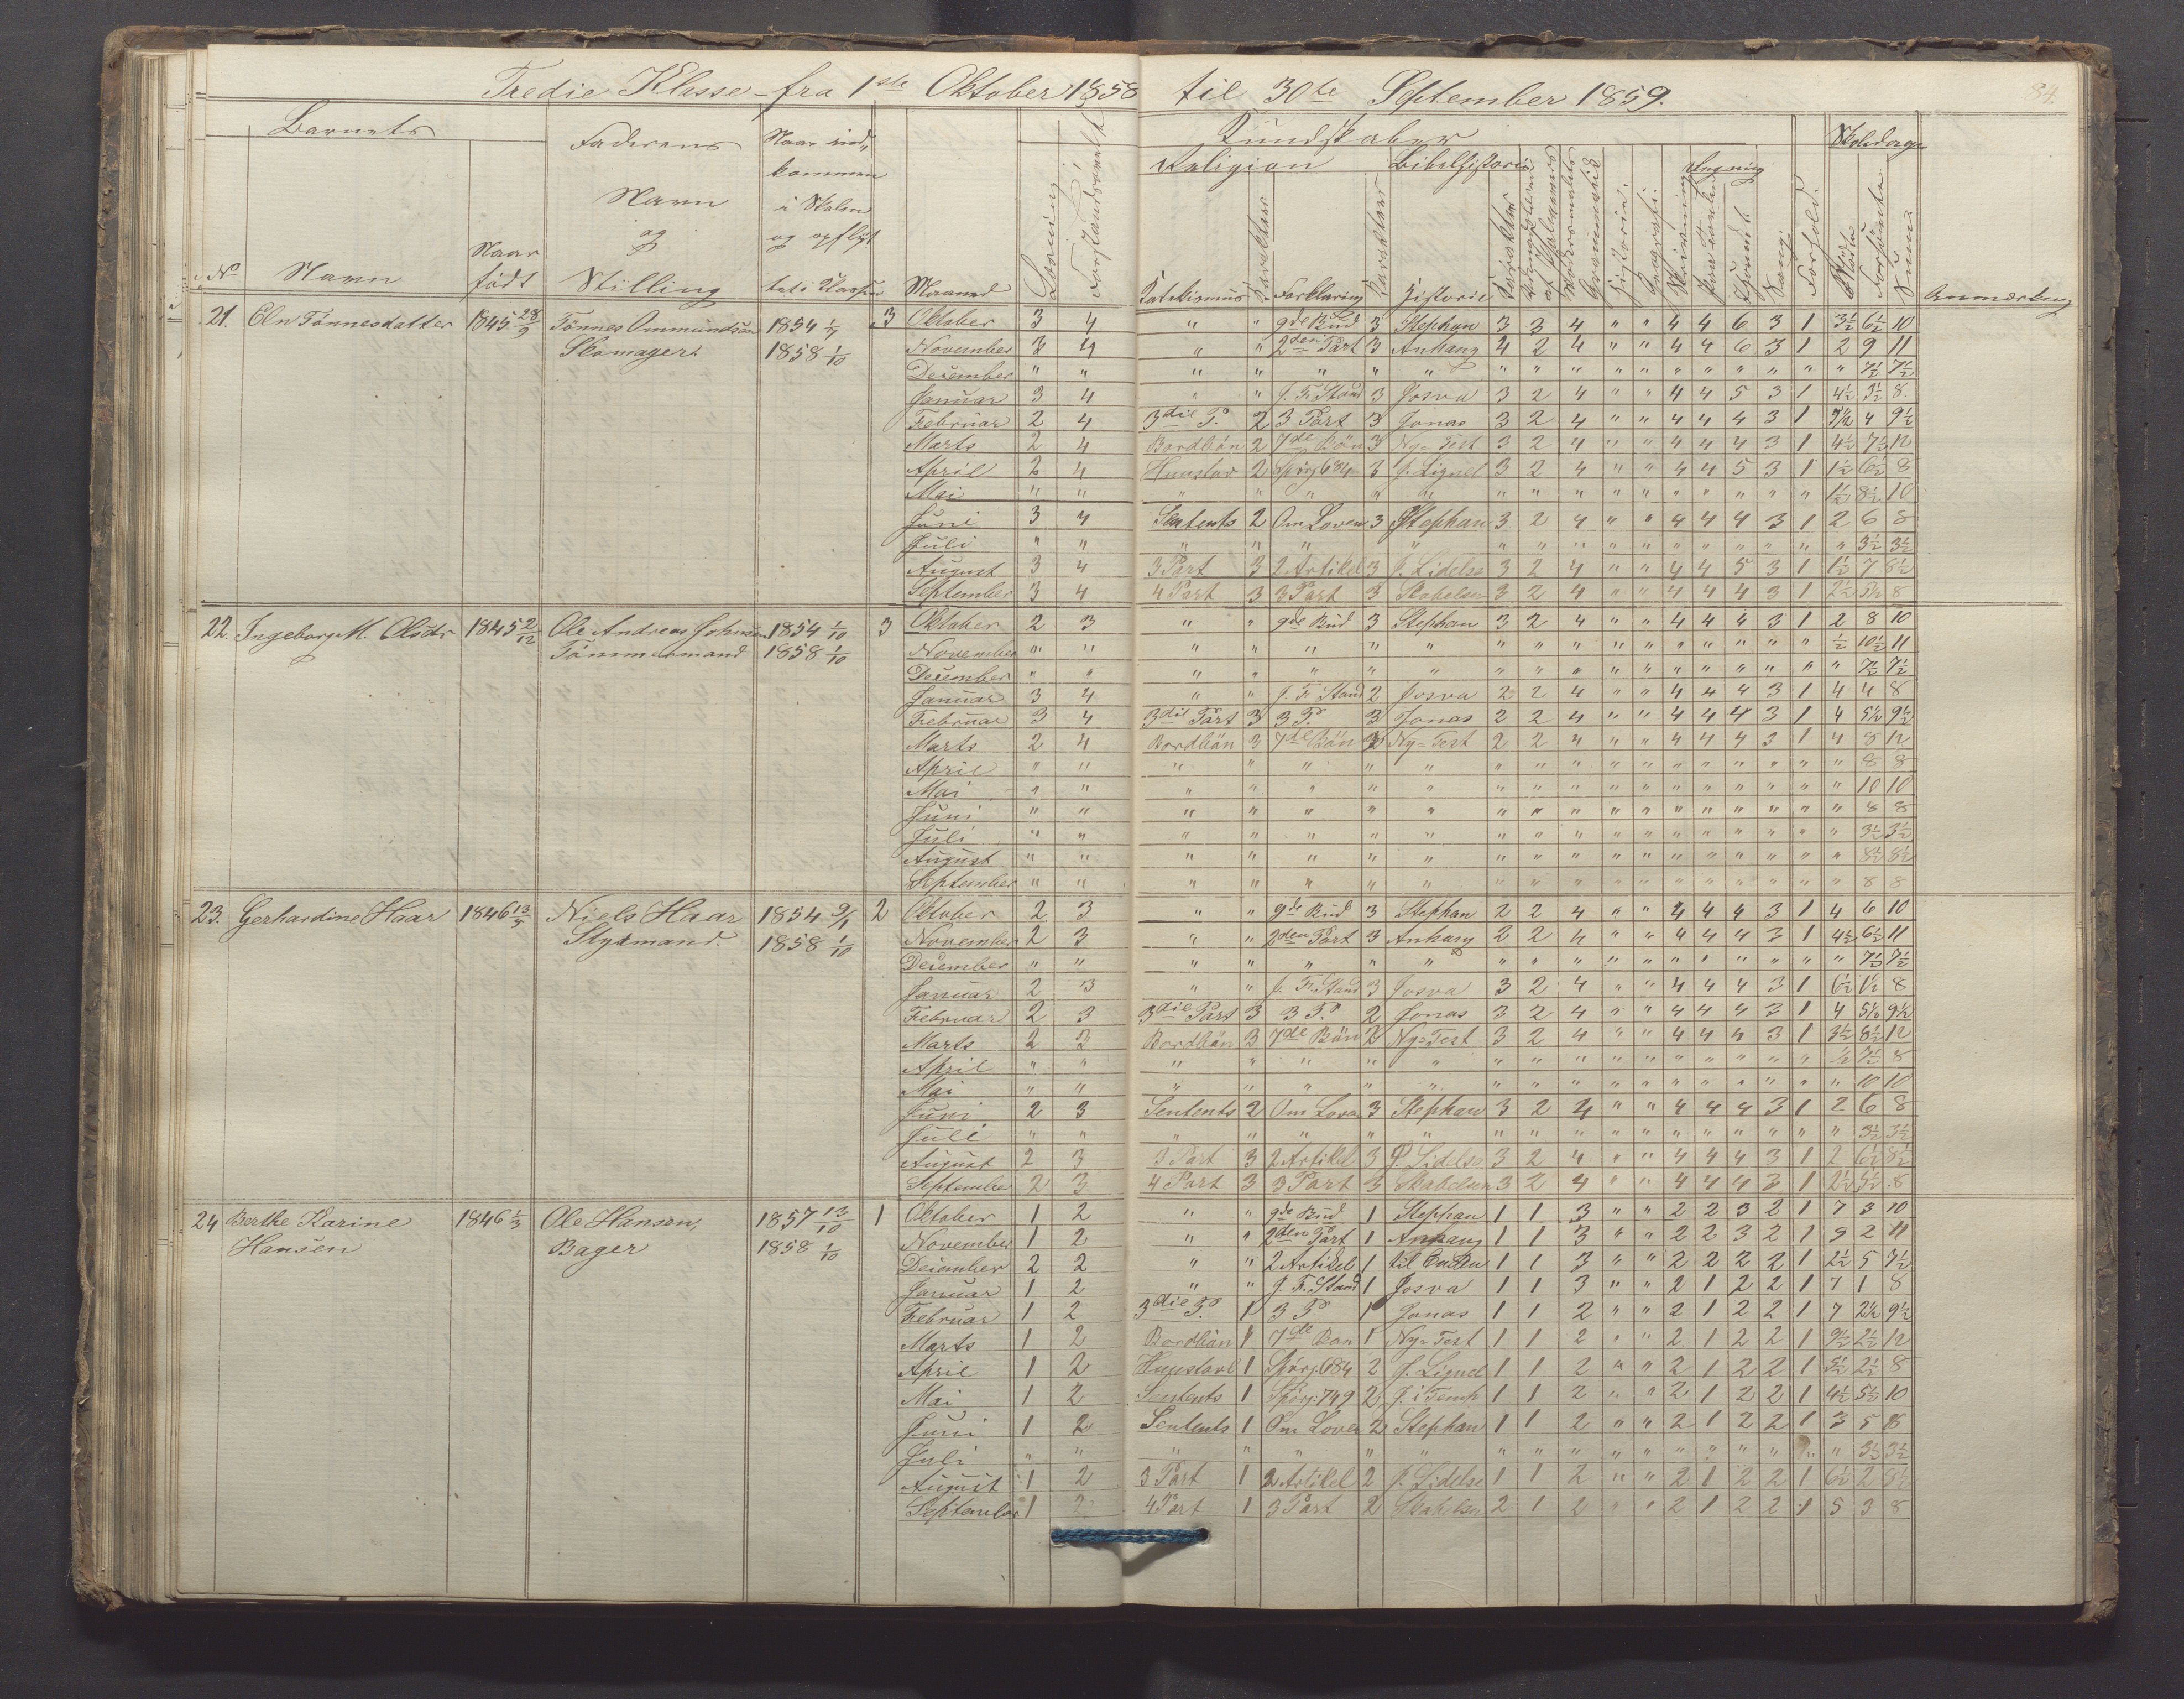 Tredie Klasse fra 1ste Oktober 1858 til 30te September 1859.
84.
Barnets Faderens Naar ind- Kundskaber Skoledage
Navn kommen Religion Bibelhistorie Regning
og i Skolen
Naar og opflyt
No Navn født Stilling tet i Klassen Maaned Læsning Forstandsøvelse Katekismus Karakter Forklaring Karakter Historie Karakter Grammatik Historie Geografi Skrivning Sang Forhold Mødte Forsømte Summa Anmærkning
21. Eln Tønnesdatter 1845 28/9 Tønnes Ommundsen 1854 3 Oktober 3 4 " " 9de Bud 3 Stephan 3 3 4 " " 4 4 6 3 1 3½ 6½ 10
Skomager. 1858 1/10 November 3 4 " " 2den Part 3 Anhang 4 2 4 " " 4 4 6 3 1 2 9 11
December " " " " " " " " " " " " " " " " " " 7½ 7½
Januar 3 4 " " J. Fr. Stand 3 Josva 3 2 4 " " 4 4 5 3 1 4½ 3½ 8
Februar 2 4 3die P. 2 3 Part 3 Jonas 3 2 4 " " 4 4 4 3 1 4 9½
Marts 2 4 Bordbøn 2 7de Bøn 3 Ny-Test 3 2 4 " " 4 4 4 3 1 4½ 7½ 12
April 2 4 Huustav 2 Spörg 684 3 J. Lignel 3 2 4 " " 4 4 5 3 1 1½ 6½ 8
Mai " " " " " " " " " " " " " " " " " 1½ 8½ 10
Juni 3 4 Sentents 2 Om Loven 3 Stephan 3 2 4 " " 4 4 4 3 1 2 6 8
Juli " " " " " " " " " " " " " " " " " " 3½ 3½
August 3 4 3 Part 3 2 Artikel 3 J. Lidelse 3 2 4 " " 4 4 5 3 1 1½ 7 8½
September 3 4 4 Part 3 3 Part 3 Skabelsen 3 2 4 " " 4 4 4 3 1 2½ 5½ 8
22. Ingeborg M. Olsdr 1845 2/12 Ole Andreas Johnsen 1854 1/10 3 Oktober 2 3 " " 9de Bud 3 Stephan 3 2 4 " " 4 4 4 3 1 2 8 10
Tømmermand 1858 1/10 November " " " " " " " " " " " " " " " " " ½ 10½ 11
December " " " " " " " " " " " " " " " " " " 7½ 7½
Januar 3 4 " " J. Fr. Stand 2 Josva 2 2 4 " " 4 4 4 3 1 4 4 8
Februar 3 4 3die Part 3 3 P. 3 Jonas 2 2 4 " " 4 4 4 3 1 4 5½ 9½
Marts 2 4 Bordbøn 3 7de Bøn 3 Ny-Test 2 2 4 " " 4 4 4 3 1 4 8 12
April " " " " " " " " " " " " " " " " " " 8 8
Mai " " " " " " " " " " " " " " " " " " 10 10
Juni " " " " " " " " " " " " " " " " " " 8 8
Juli " " " " " " " " " " " " " " " " " " 3½ 3½
August " " " " " " " " " " " " " " " " " " 8½ 8½
September " " " " " " " " " " " " " " " " " " 8 8
23. Gerhardine Haar 1846 13/5 Niels Haar 1854 9/1 2 Oktober 2 3 " " 9de Bud 3 Stephan 2 2 4 " " 4 4 4 3 1 4 6 10
Stydmand. 1858 1/10 November 2 3 " " 2den Part 3 Anhang 2 2 4 " " 4 4 4 3 1 4½ 6½ 11
December " " " " " " " " " " " " " " " " " " 7½ 7½
Januar 2 3 " " J. Fr. Stand 3 Josva 3 2 4 " " 4 4 4 3 1 6½ 1½ 8
Februar 2 3 3die Part 3 3 P. 2 Jonas 3 2 4 " " 4 4 4 3 1 4 5½ 9½
Marts 2 3 Bordbøn 3 7de Bøn 2 Ny-Test 3 2 4 " " 4 4 4 3 1 3½ 8½ 12
April " " " " " " " " " " " " " " " " " ½ 7½ 8
Mai " " " " " " " " " " " " " " " " " " 10 10
Juni 2 3 Sentents 2 Om Loven 3 Stephan 3 2 4 " " 4 4 4 3 1 2 6 8
Juli " " " " " " " " " " " " " " " " " " 3½ 3½
August 2 3 3 Part 3 2 Artikel 3 J. Lidelse 3 2 4 " " 4 4 4 3 1 2 6½ 8½
September 2 3 4 Part 3 3 Part 3 Skabelsen 3 2 4 " " 4 4 4 3 1 2½ 5½ 8
24 Berthe Karine 1846 1/3 Ole Hansen, 1857 13/10 1 Oktober 1 2 " " 9de Bud 1 Stephan 1 1 3 " " 2 2 3 2 1 7 3 10
Hansen Bager 1858 1/10 November 1 2 " " 2den Part 1 Anhang 1 1 3 " " 2 2 3 2 1 9 2 11
December 2 2 " " 2 Artikel 1 til Enden 1 1 3 " " 2 2 2 2 1 2½ 5 7½
Januar 1 2 " " J. Fr. Stand 1 Josva 1 1 3 " " 2 1 2 2 1 7 1 8
Februar 1 2 3die P. 1 3 P. 1 Jonas 1 1 2 " " 2 1 2 2 1 7 2½ 9½
Marts 1 2 Bordbøn 1 7de Bøn 1 Ny-Test 1 1 2 " " 2 1 2 2 1 9½ 2½ 12
April 1 2 Huustavl 1 Spörg 684 2 J. Lignel 1 1 2 " " 2 1 2 2 1 5½ 2½ 8
Mai 1 2 Sentents 1 Spörg. 749 2 J. i Temp 1 1 2 " " 2 1 2 2 1 4½ 5½ 10
Juni 1 2 Sentents 1 Om Loven 2 Stephan 1 1 2 " " 2 1 2 2 1 3 5 8
Juli " " " " " " " " " " " " " " " " " " 3½ 3½
August 1 2 3 Part 1 2 Artikel 2 J. Lidelse 1 1 2 " " 2 1 2 2 1 6½ 2 8½
September 1 2 4 Part 1 3 Part 2 Skabelsen 2 1 2 " " 2 1 2 2 1 5 3 8